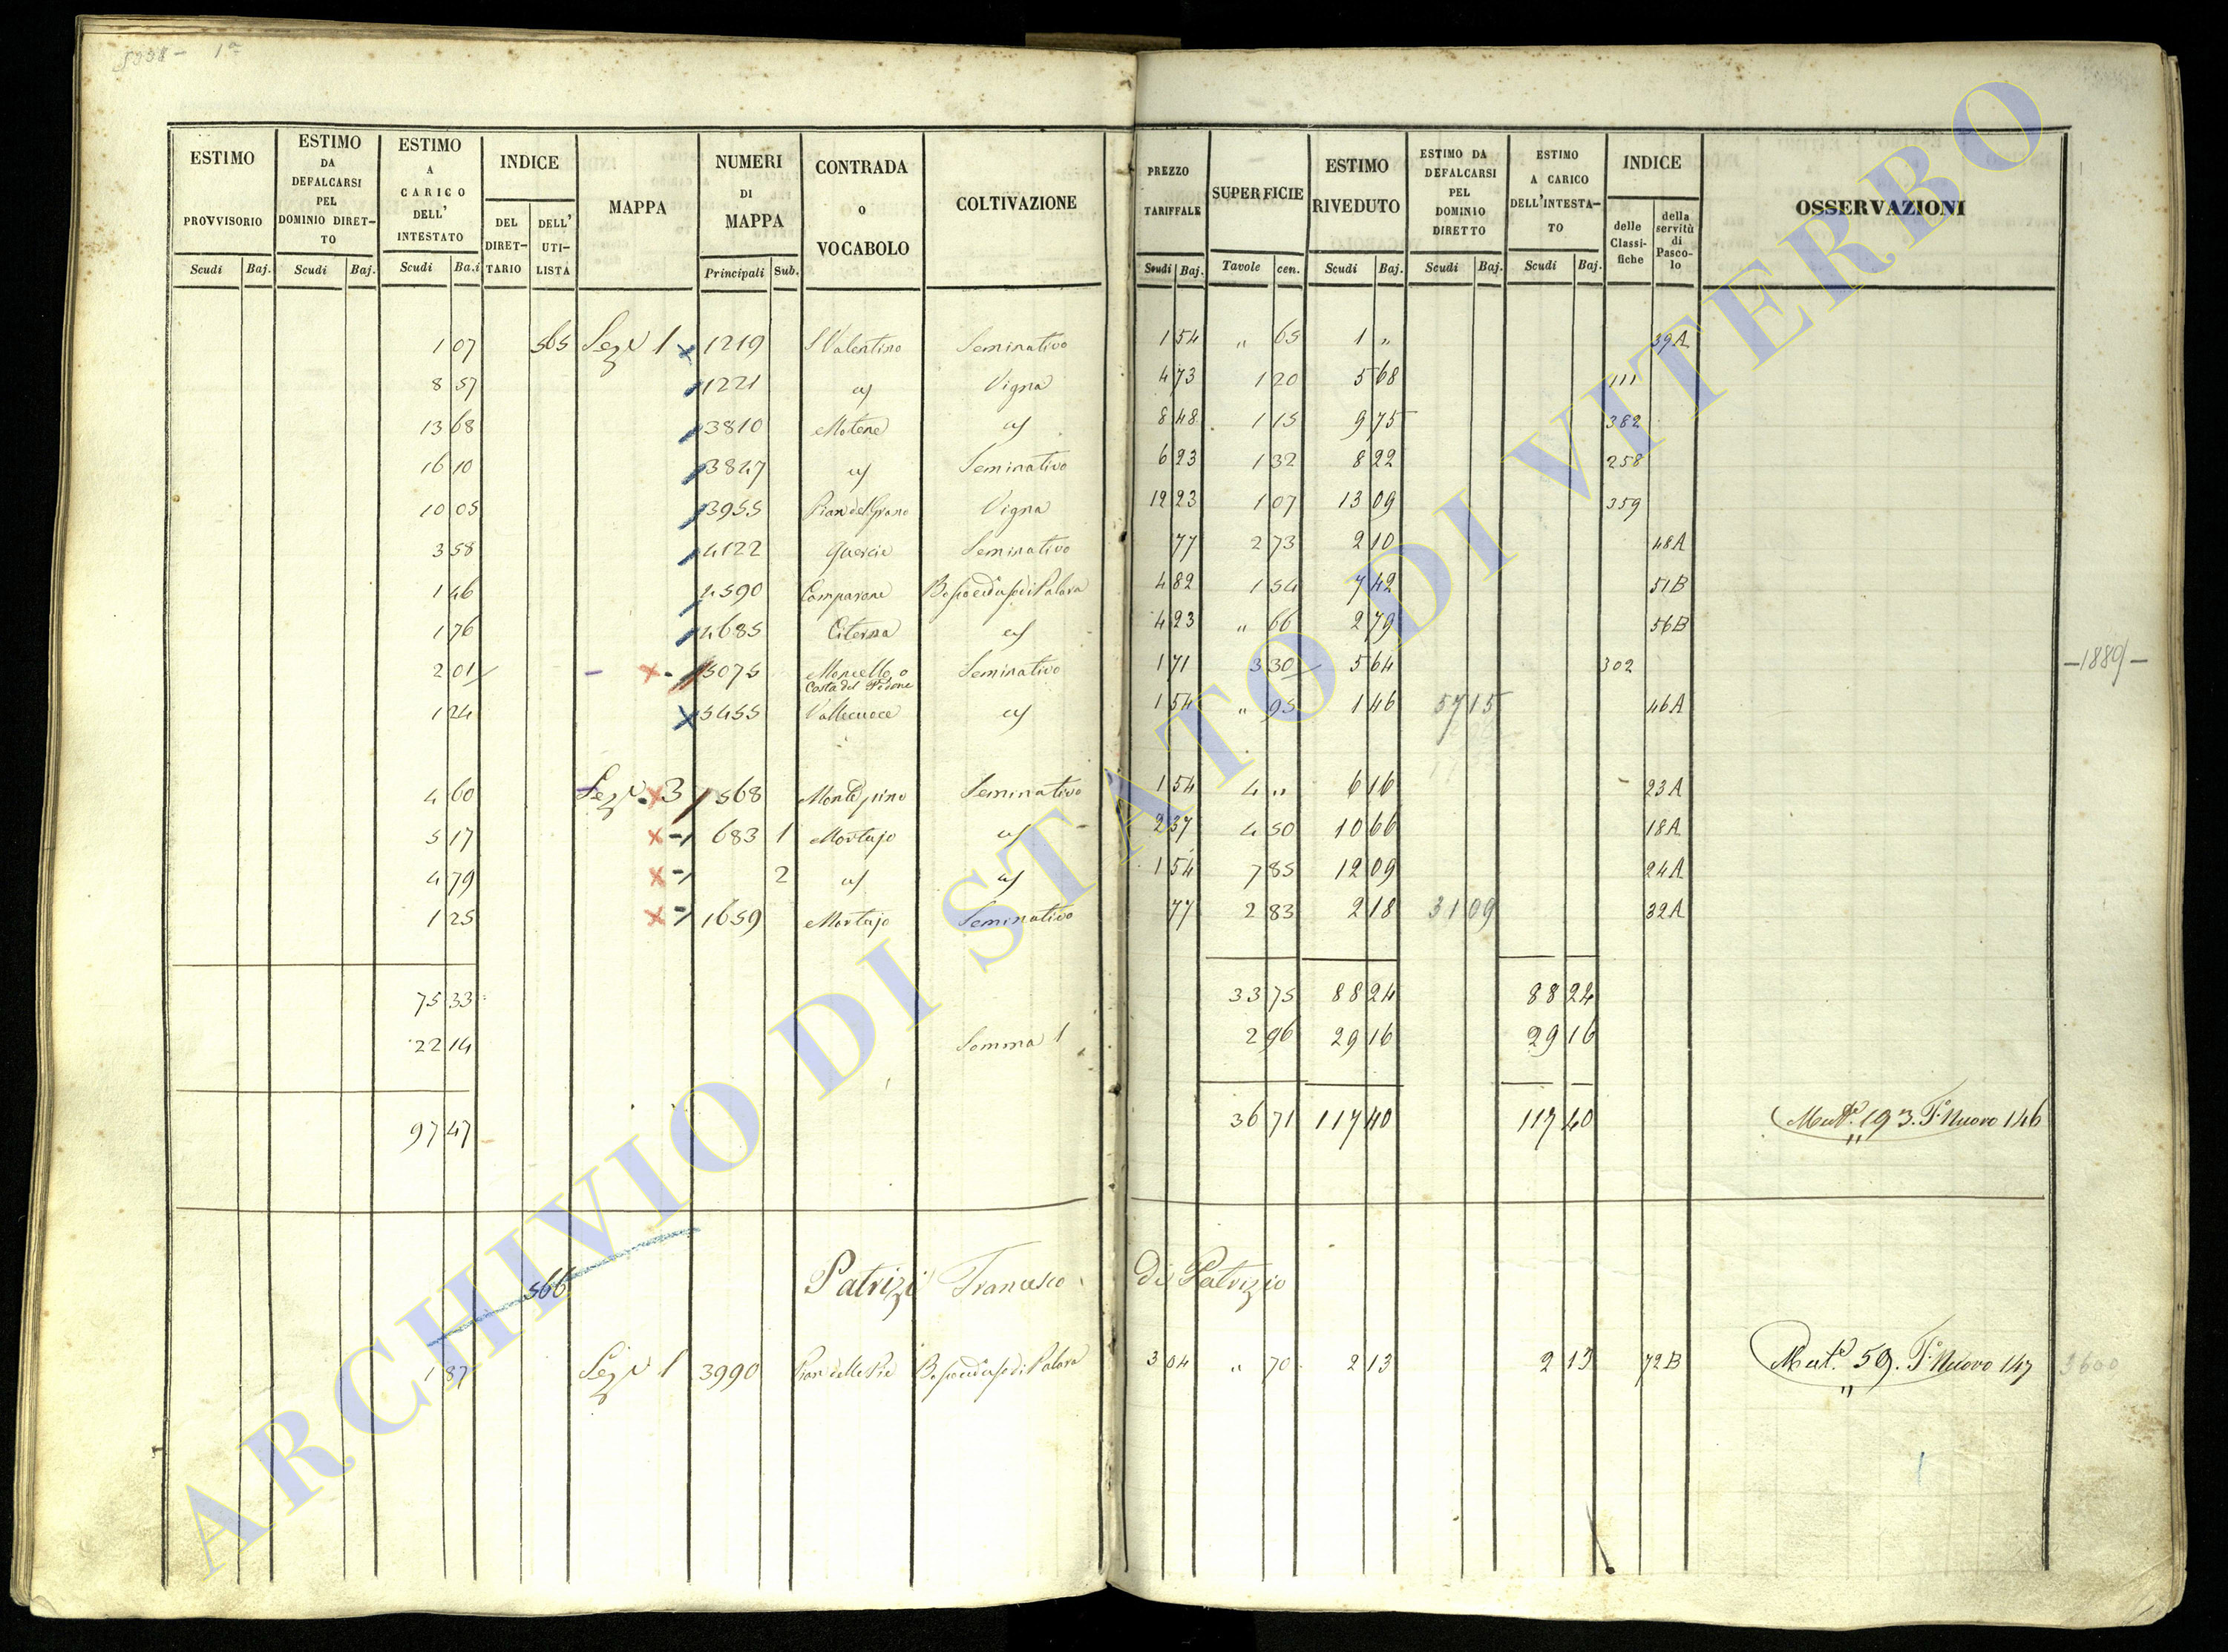 1ª
ESTIMO PROVVISORIO Scudi Baj.
ESTIMO DA DEFALCARSI PEL DOMINIO DIRETTO Scudi Baj.
ESTIMO A CARICO DELL' INTESTATO Scudi Ba.i
INDICE DEL DIRETTARIO DELL' UTILISTA
MAPPA
NUMERI DI MAPPA Principali Sub.
CONTRADA O VOCABOLO
COLTIVAZIONE
PREZZO TARIFFALE Scudi Baj.
SUPERFICIE Tavole cen.
ESTIMO RIVEDUTO Scudi Baj.
ESTIMO DA DEFALCARSI PEL DOMINIO DIRETTO Scudi Baj.
ESTIMO A CARICO DELL'INTESTATO Scudi Baj.
INDICE delle Classifiche della servitù di Pascolo
OSSERVAZIONI
1 07 565 Sez 1 1219 S Valentino Seminativo 1 54 " 65 1 " 39A
8 57 1221 Vigna 4 73 1 20 5 68 111
13 68 3810 Motene 8 48 1 15 9 75 382
16 10 3827 Seminativo 6 23 1 32 8 22 258
10 05 3955 Pian del Grano Vigna 12 23 1 07 13 09 359
3 58 4122 Quercie Seminativo 77 2 73 2 10 48A
1 46 4590 Comparone 4 82 1 54 7 42 51B
1 76 4685 Citerna 4 23 " 66 2 79 56B
2 01 5075 Moncello o Costa del Pedone Seminativo 1 71 3 30 5 64 302 -1889-
1 24 5455 Vallecuoce 1 54 " 95 1 46 57 15 46A
4 60 Sez 3 568 Monte pino Seminativo 1 54 4 " 6 16 23A
5 17 683 1 Mortajo 2 37 4 50 10 66 18A
4 79 2 1 54 7 85 12 09 24A
1 25 1659 Mortajo Seminativo 77 2 83 2 18 31 09 32A
75 33 33 75 88 24 88 24
22 14 Somma 1 2 96 29 16 29 16
97 47 36 71 117 40 117 40 Mut.e 193. F.o Nuovo 146
566 Patrizi Francesco di Patrizio
1 87 Sez 1 3990 Pian delle Piè 3 04 " 70 2 13 2 13 72B Mut.e 59. F.o Nuovo 147 3600
ARCHIVIO DI STATO DI VITERBO